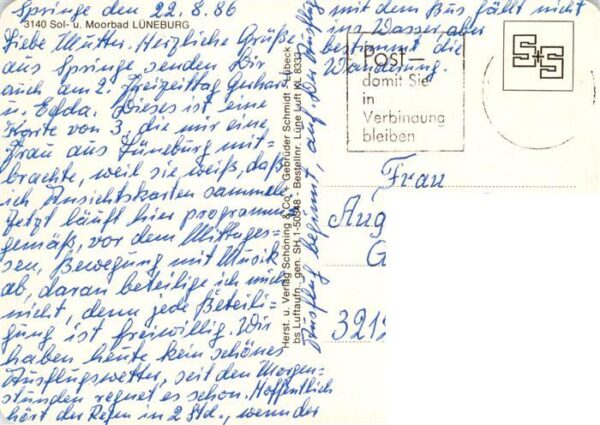 Springe den 22.8.86
3140 Sol- u. Moorbad LÜNEBURG
Liebe Mutter. Herzliche Grüße
aus Springe senden Dir
auch am 2. Freizeittag Gerhard
u. Edda. Dieses ist eine
Karte von 3, die mir eine
Frau aus Lüneburg mit-
brachte, weil sie weiß, daß
ich Ansichtskarten sammele.
Jetzt läuft hier programm-
gemäß, vor dem Mittages-
sen, Bewegung mit Musik
ab, daran beteilige ich mich
nicht, denn jede Beteili-
gung ist freiwillig. Wir
haben heute kein schönes
Ausflugswetter, seit den Morgen-
stunden regnet es schon. Hoffentlich
hört der Regen in 2 Std., wenn der
Ausflug beginnt, auf. Der Ausflug
mit dem Bus fällt nicht
ins Wasser, aber
bestimmt die
Wanderung.
Herst. u. Verlag Schöning & Co. + Gebrüder Schmidt · Lübeck
bs Luftaufn., gen. SH 1-50348 - Bestellnr. Lüne Luft KL 8333
Post–
damit Sie
in
Verbindung
bleiben
S+S
Frau
Aug
G
3212